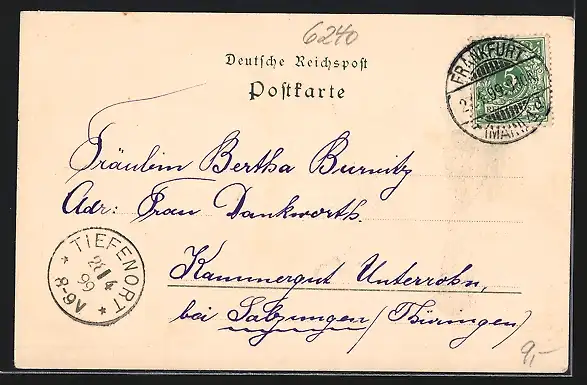 6240
Deutsche Reichspost
Postkarte
FRANKFURT
(MAIN)
5
Fräulein Bertha
Adr: Frau Dankworth.
Kammergut Unterrohn,
bei Salzungen (Thüringen)
* TIEFENORT *
4
99
8-9V
9,-